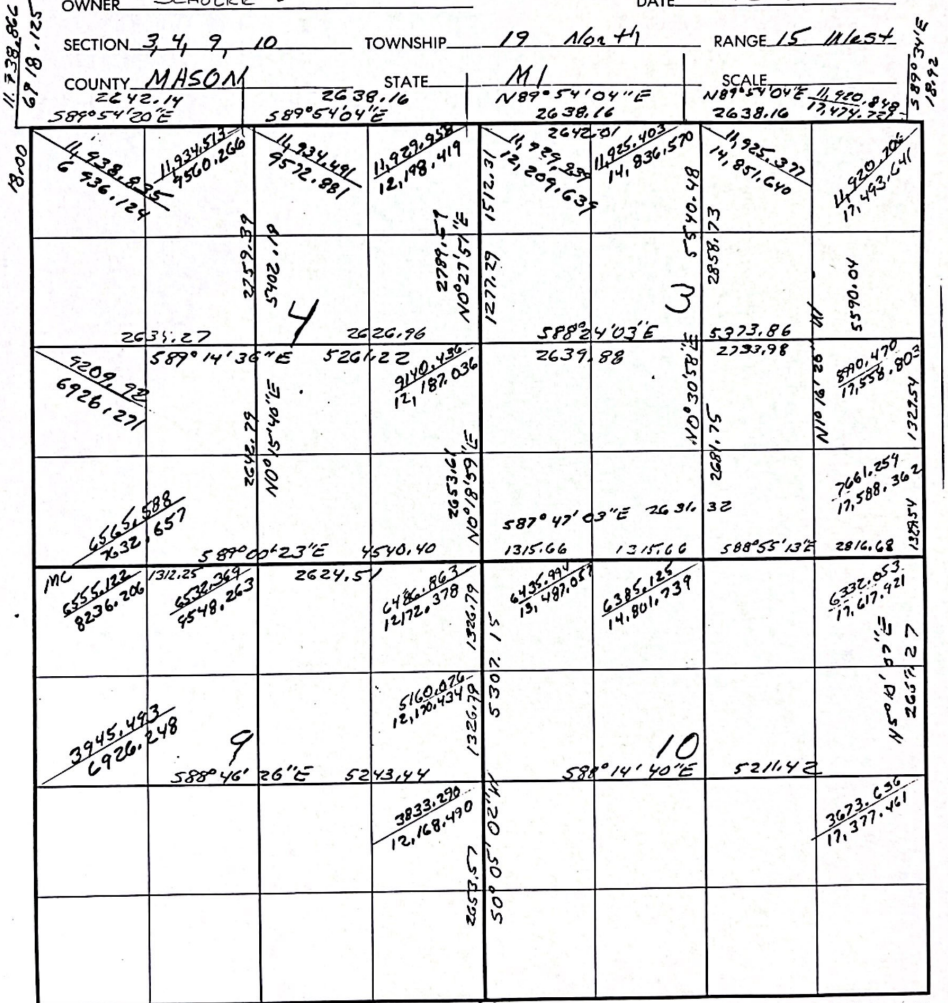 OWNER
DATE
11,938.866
6918.125
SECTION 3, 4, 9, 10 TOWNSHIP 19 North RANGE 15 West
COUNTY MASON STATE MI SCALE
S89°34'E
18.92
2642.14
S89°54'20"E
2638.16
S89°54'04"E
N89°54'04"E
2638.16
N89°54'04"E
2638.16
11,920.848
17,474.729
18.00
11,938.835
6936.124
11,934.513
9560.266
11,934.491
9572.881
11,929.958
12,198.419
2642.01
12,209.639
11,925.403
14,836.570
11,925.377
14,851.640
11,920.706
17,493.641
2759.39
5402.18
2789.57
N0°27'51"E
1512.31
1277.29
5540.48
2858.73
5590.04
4
3
2634.27
2626.96
S88°24'03"E
5373.86
S89°14'36"E
5261.22
2639.88
2733.98
9209.92
6926.271
9140.436
12,187.036
8990.470
17,558.803
2642.79
N0°15'40"E
N0°30'58"E
2681.75
N1°16'29"W
1329.54
6565.588
7632.657
2653.61
N0°18'59"E
7661.254
17,588.362
1329.54
S87°47'03"E 2631.32
S89°00'23"E
4540.40
1315.66
1315.66
S88°55'13"E
2816.68
MC
6555.122
8236.206
1312.25
6532.369
9548.263
2624.51
6486.863
12172.378
6435.994
13,487.057
6385.125
14,801.739
6332.053
17,617.921
1326.79
5307.15
5160.076
12,170.434
1326.79
2657.27
3945.493
6926.248
9
10
S88°46'26"E
5243.44
S88°14'40"E
5211.42
3833.290
12,168.490
3673.636
17,377.461
2653.57
S0°05'02"W